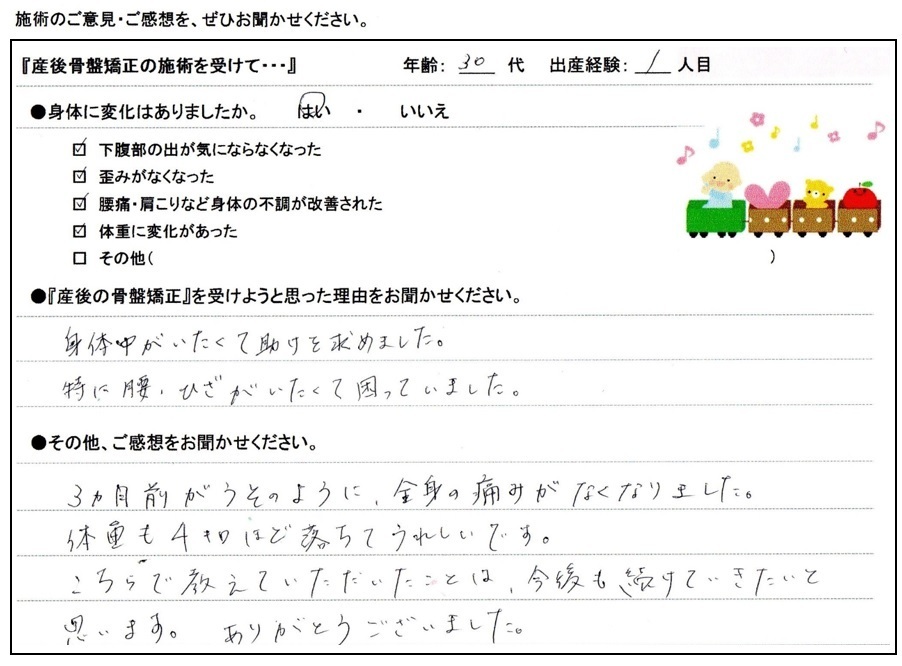 施術のご意見・ご感想を、ぜひお聞かせください。
『産後骨盤矯正の施術を受けて・・・』 年齢: 30 代 出産経験: 1 人目
●身体に変化はありましたか。 はい ・ いいえ
☑ 下腹部の出が気にならなくなった
☑ 歪みがなくなった
☑ 腰痛・肩こりなど身体の不調が改善された
☑ 体重に変化があった
□ その他( )
●『産後の骨盤矯正』を受けようと思った理由をお聞かせください。
身体中がいたくて助けを求めました。
特に腰、ひざがいたくて困っていました。
●その他、ご感想をお聞かせください。
3ヵ月前がうそのように、全身の痛みがなくなりました。
体重も4キロほど落ちてうれしいです。
こちらで教えていただいたことは、今後も続けていきたいと
思います。 ありがとうございました。